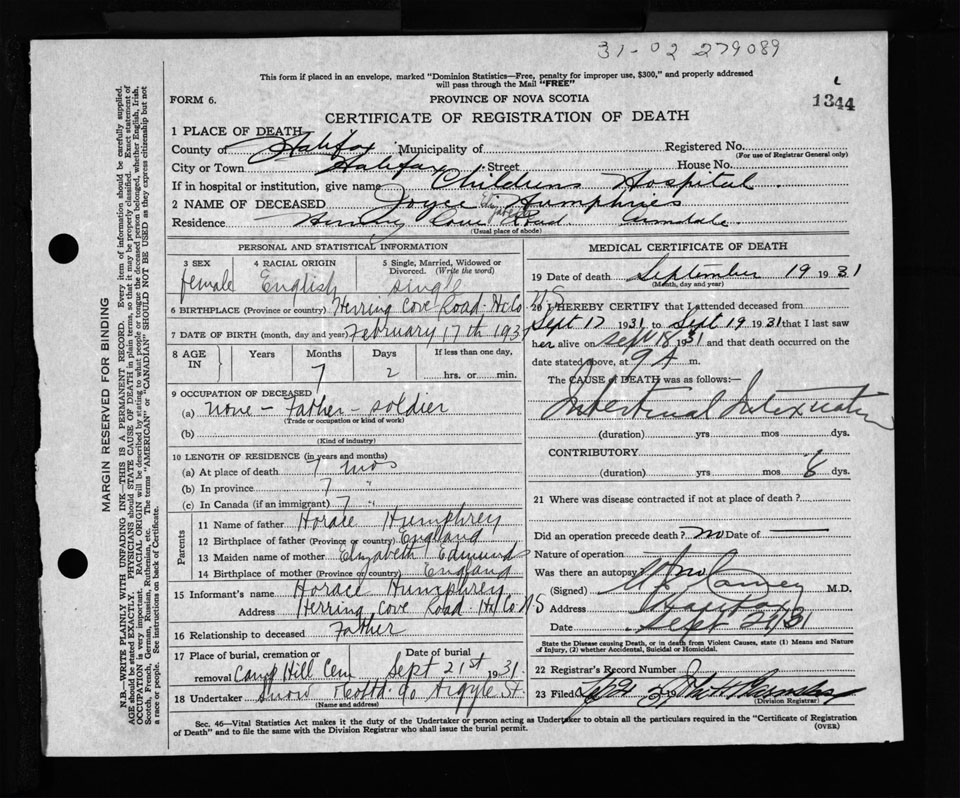 31-02 279089
This form if placed in an envelope, marked "Dominion Statistics—Free, penalty for improper use, $300," and properly addressed
will pass through the Mail "FREE"
FORM 6.
PROVINCE OF NOVA SCOTIA
1344
CERTIFICATE OF REGISTRATION OF DEATH
1 PLACE OF DEATH
County of Halifax Municipality of Registered No.
(For use of Registrar General only)
City or Town Halifax Street House No.
If in hospital or institution, give name Childrens Hospital
2 NAME OF DECEASED Joyce Elizabeth Humphries
Residence Herring Cove Road Armdale
(Usual place of abode)
PERSONAL AND STATISTICAL INFORMATION
3 SEX 4 RACIAL ORIGIN 5 Single, Married, Widowed or
Divorced. (Write the word)
female English single
6 BIRTHPLACE (Province or country) Herring Cove Road. Hx Co N S
7 DATE OF BIRTH (month, day and year) February 17th 1931
8 AGE IN Years Months Days If less than one day,
7 2 hrs. or min.
9 OCCUPATION OF DECEASED
(a) none - Father - soldier
(Trade or occupation or kind of work)
(b)
(Kind of industry)
10 LENGTH OF RESIDENCE (in years and months)
(a) At place of death 7 mos
(b) In province 7 "
(c) In Canada (if an immigrant) 7 "
Parents
11 Name of father Horace Humphrey
12 Birthplace of father (Province or country) England
13 Maiden name of mother Elizabeth Edmunds
14 Birthplace of mother (Province or country) England
15 Informant's name Horace Humphrey
Address Herring Cove Road Hx Co N S
16 Relationship to deceased Father
17 Place of burial, cremation or Date of burial
removal Camp Hill Cem Sept 21st 1931
18 Undertaker Snow 90 Argyle St.
(Name and address)
MEDICAL CERTIFICATE OF DEATH
19 Date of death September 19 1931
(Month, day and year)
20 I HEREBY CERTIFY that I attended deceased from
Sept 17 1931 to Sept 19 1931 that I last saw
her alive on Sept 18 1931 and that death occurred on the
date stated above, at 9 A m.
The CAUSE of DEATH was as follows:—
Intestinal Intoxication
(duration) yrs mos dys.
CONTRIBUTORY
(duration) yrs mos 6 dys.
21 Where was disease contracted if not at place of death?
Did an operation precede death? no Date of
Nature of operation
Was there an autopsy?
(Signed) M.D.
Address Halifax
Date Sept 31
State the Disease causing Death, or in death from Violent Causes, state (1) Means and Nature
of Injury, (2) whether Accidental, Suicidal or Homicidal.
22 Registrar's Record Number
23 Filed 19
(Division Registrar)
Sec. 46—Vital Statistics Act makes it the duty of the Undertaker or person acting as Undertaker to obtain all the particulars required in the "Certificate of Registration
of Death" and to file the same with the Division Registrar who shall issue the burial permit.
(OVER)
MARGIN RESERVED FOR BINDING
N.B.—WRITE PLAINLY WITH UNFADING INK—THIS IS A PERMANENT RECORD. Every item of information should be carefully supplied.
AGE should be stated EXACTLY. PHYSICIANS should STATE CAUSE OF DEATH in plain terms, so that it may be properly classified. Exact statement of
OCCUPATION is very important. RACIAL ORIGIN will be described by stating to what people or tongue the deceased person belonged, whether English, Irish,
Scotch, French, German, Russian, Ruthenian, etc. The terms "AMERICAN" or "CANADIAN" SHOULD NOT BE USED as they express citizenship but not
a race or people. See instructions on back of Certificate.